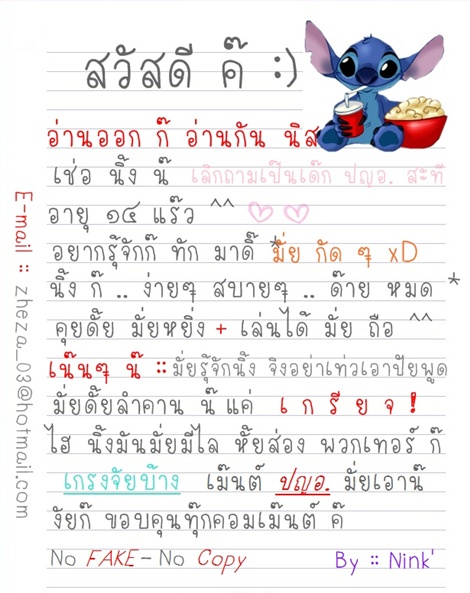 สวัสดี ค๊ :)
อ่านออก ก๊ อ่านกัน นิส
เช่อ นิ้ง น๊ เลิกถามเป็นเด๊ก ปญอ. สะที
อายุ ๑๔ แร๊ว ^^
อยากรุ้จักก๊ ทัก มาดิ๊ * มั่ย กัด ๆ xD
นิ้ง ก๊ .. ง่ายๆ สบายๆ .. ด๊าย หมด *
คุยดั๊ย มั่ยหยิ่ง + เล่นได้ มั่ย ถือ ^^
เน๊นๆ น๊ :: มั่ยรุ้จักนิ้ง จิงอย่าเท่วเอาปัยพูด
มั่ยดั๊ยลำคาน น๊ แค่ เ ก รี ย จ !
ไฮ นิ้งมันมั่ยมีไล หั๊ยส่อง พวกเทอร์ ก๊
เกรงจัยบ้าง เม๊นต์ ปญอ. มั่ยเอาน๊
งัยก๊ ขอบคุนทุ๊กคอมเม๊นต์ ค๊
No FAKE - No Copy
By :: Nink'
E-mail :: zheza_03@hotmail.com